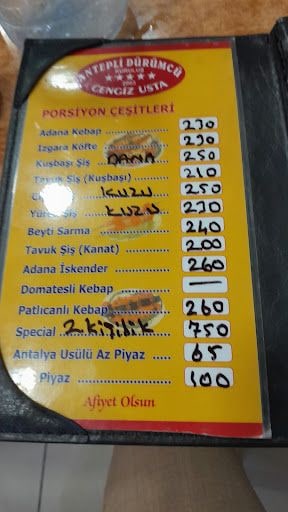 ANTEPLİ DÜRÜMCÜ
KURULUŞ
2003
CENGİZ USTA
PORSİYON ÇEŞİTLERİ
Adana Kebap 270
Izgara Köfte 290
Kuşbaşı Şiş DANA 250
Tavuk Şiş (Kuşbaşı) 210
KUZU 250
Yürek Şiş KUZU 270
Beyti Sarma 240
Tavuk Şiş (Kanat) 200
Adana İskender 260
Domatesli Kebap —
Patlıcanlı Kebap 260
Special 2 Kişilik 750
Antalya Usülü Az Piyaz 65
Piyaz 100
Afiyet Olsun